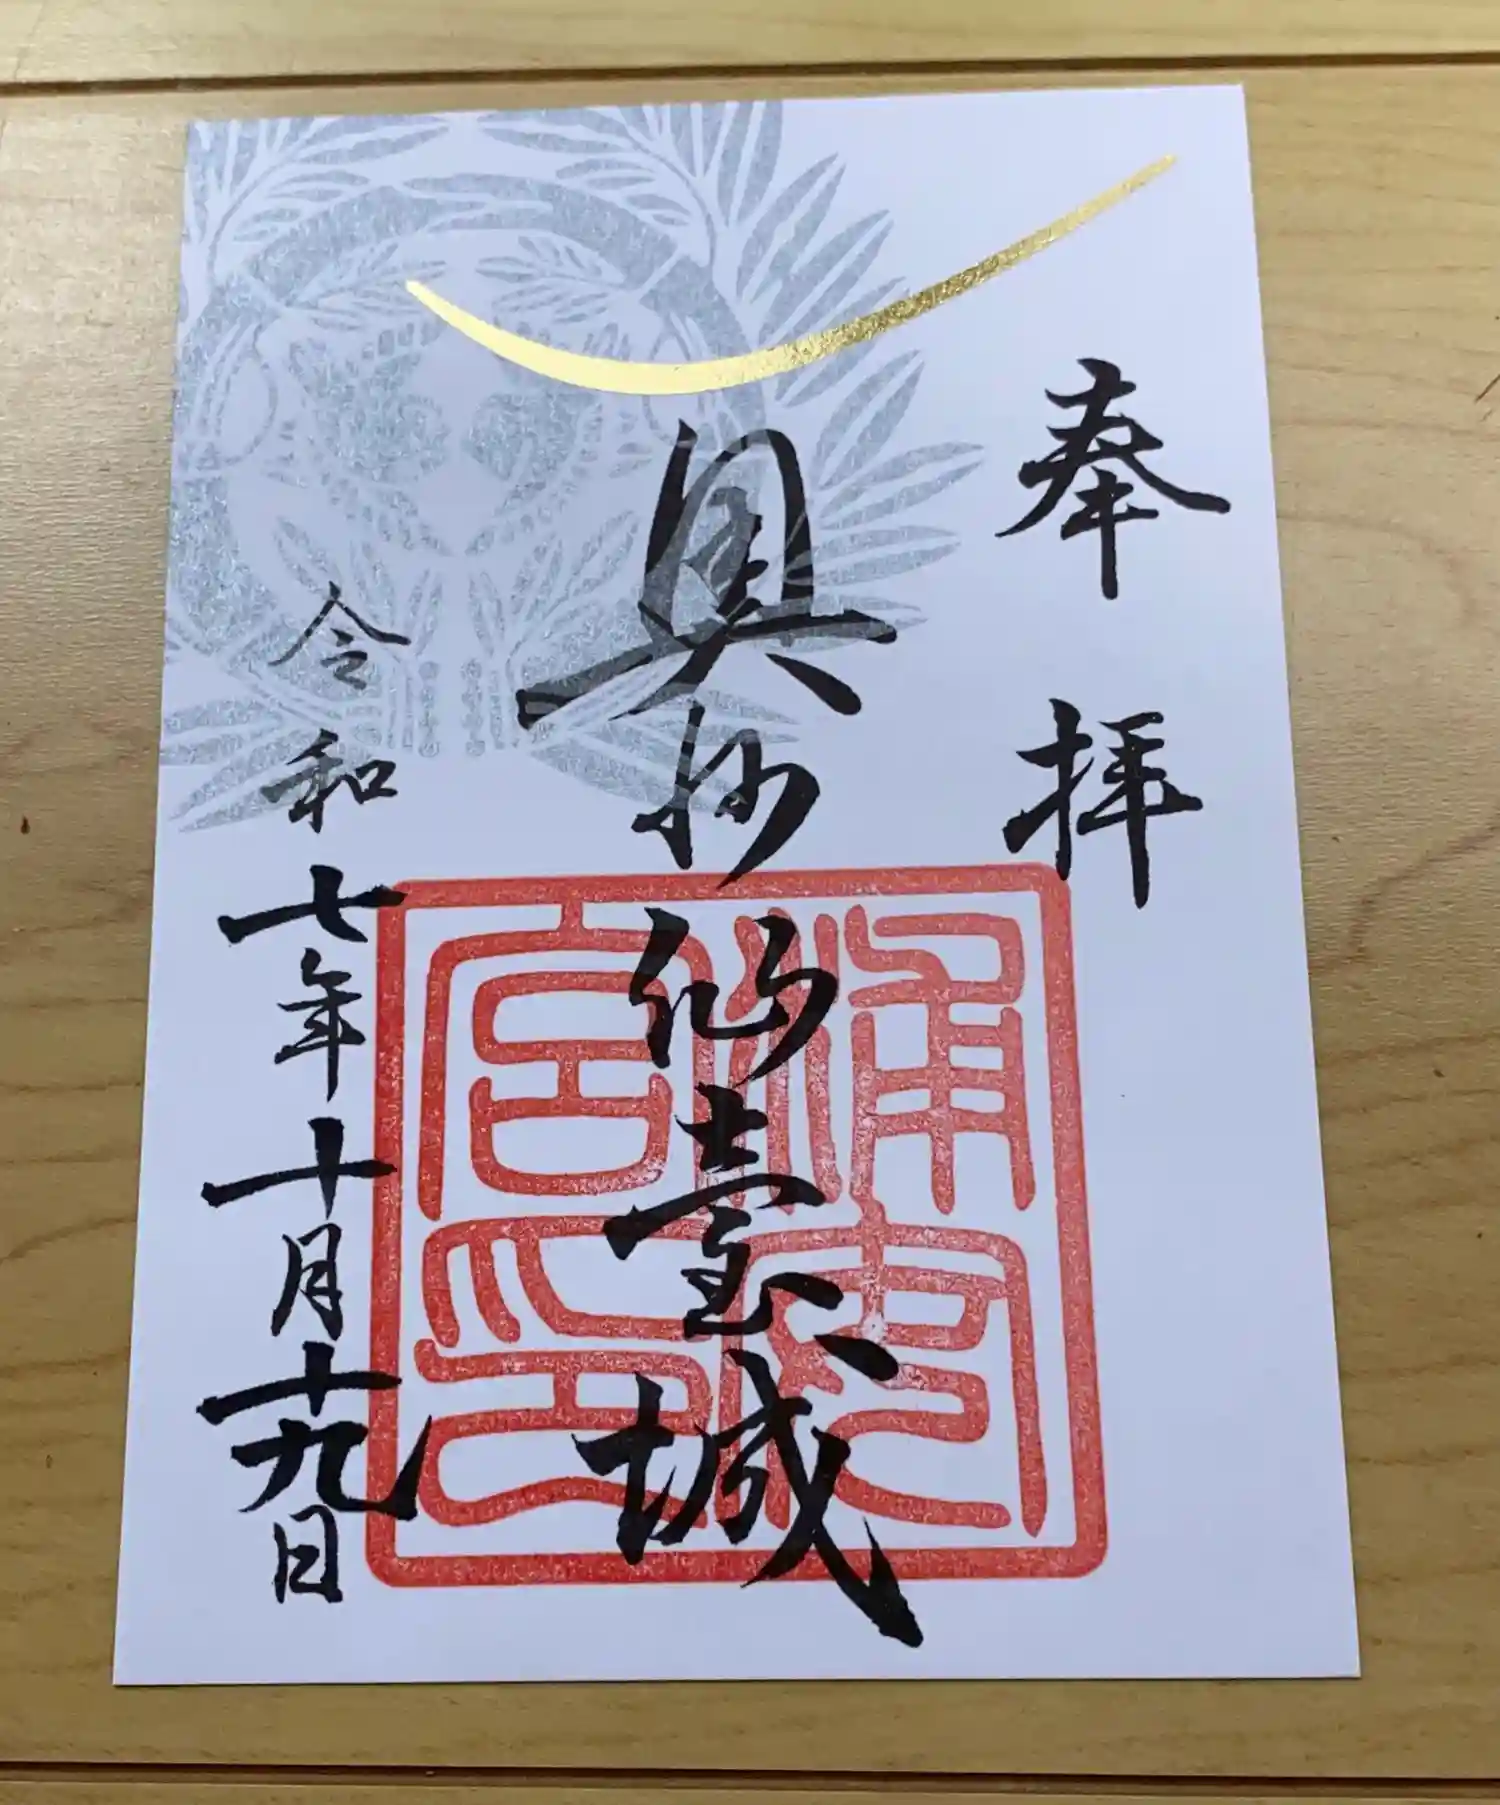 奉拝
奥州仙臺城
浦安
宮印
令和七年十月十九日